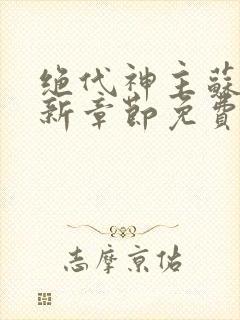 绝代神主蘇
新章節免費
志摩京佑